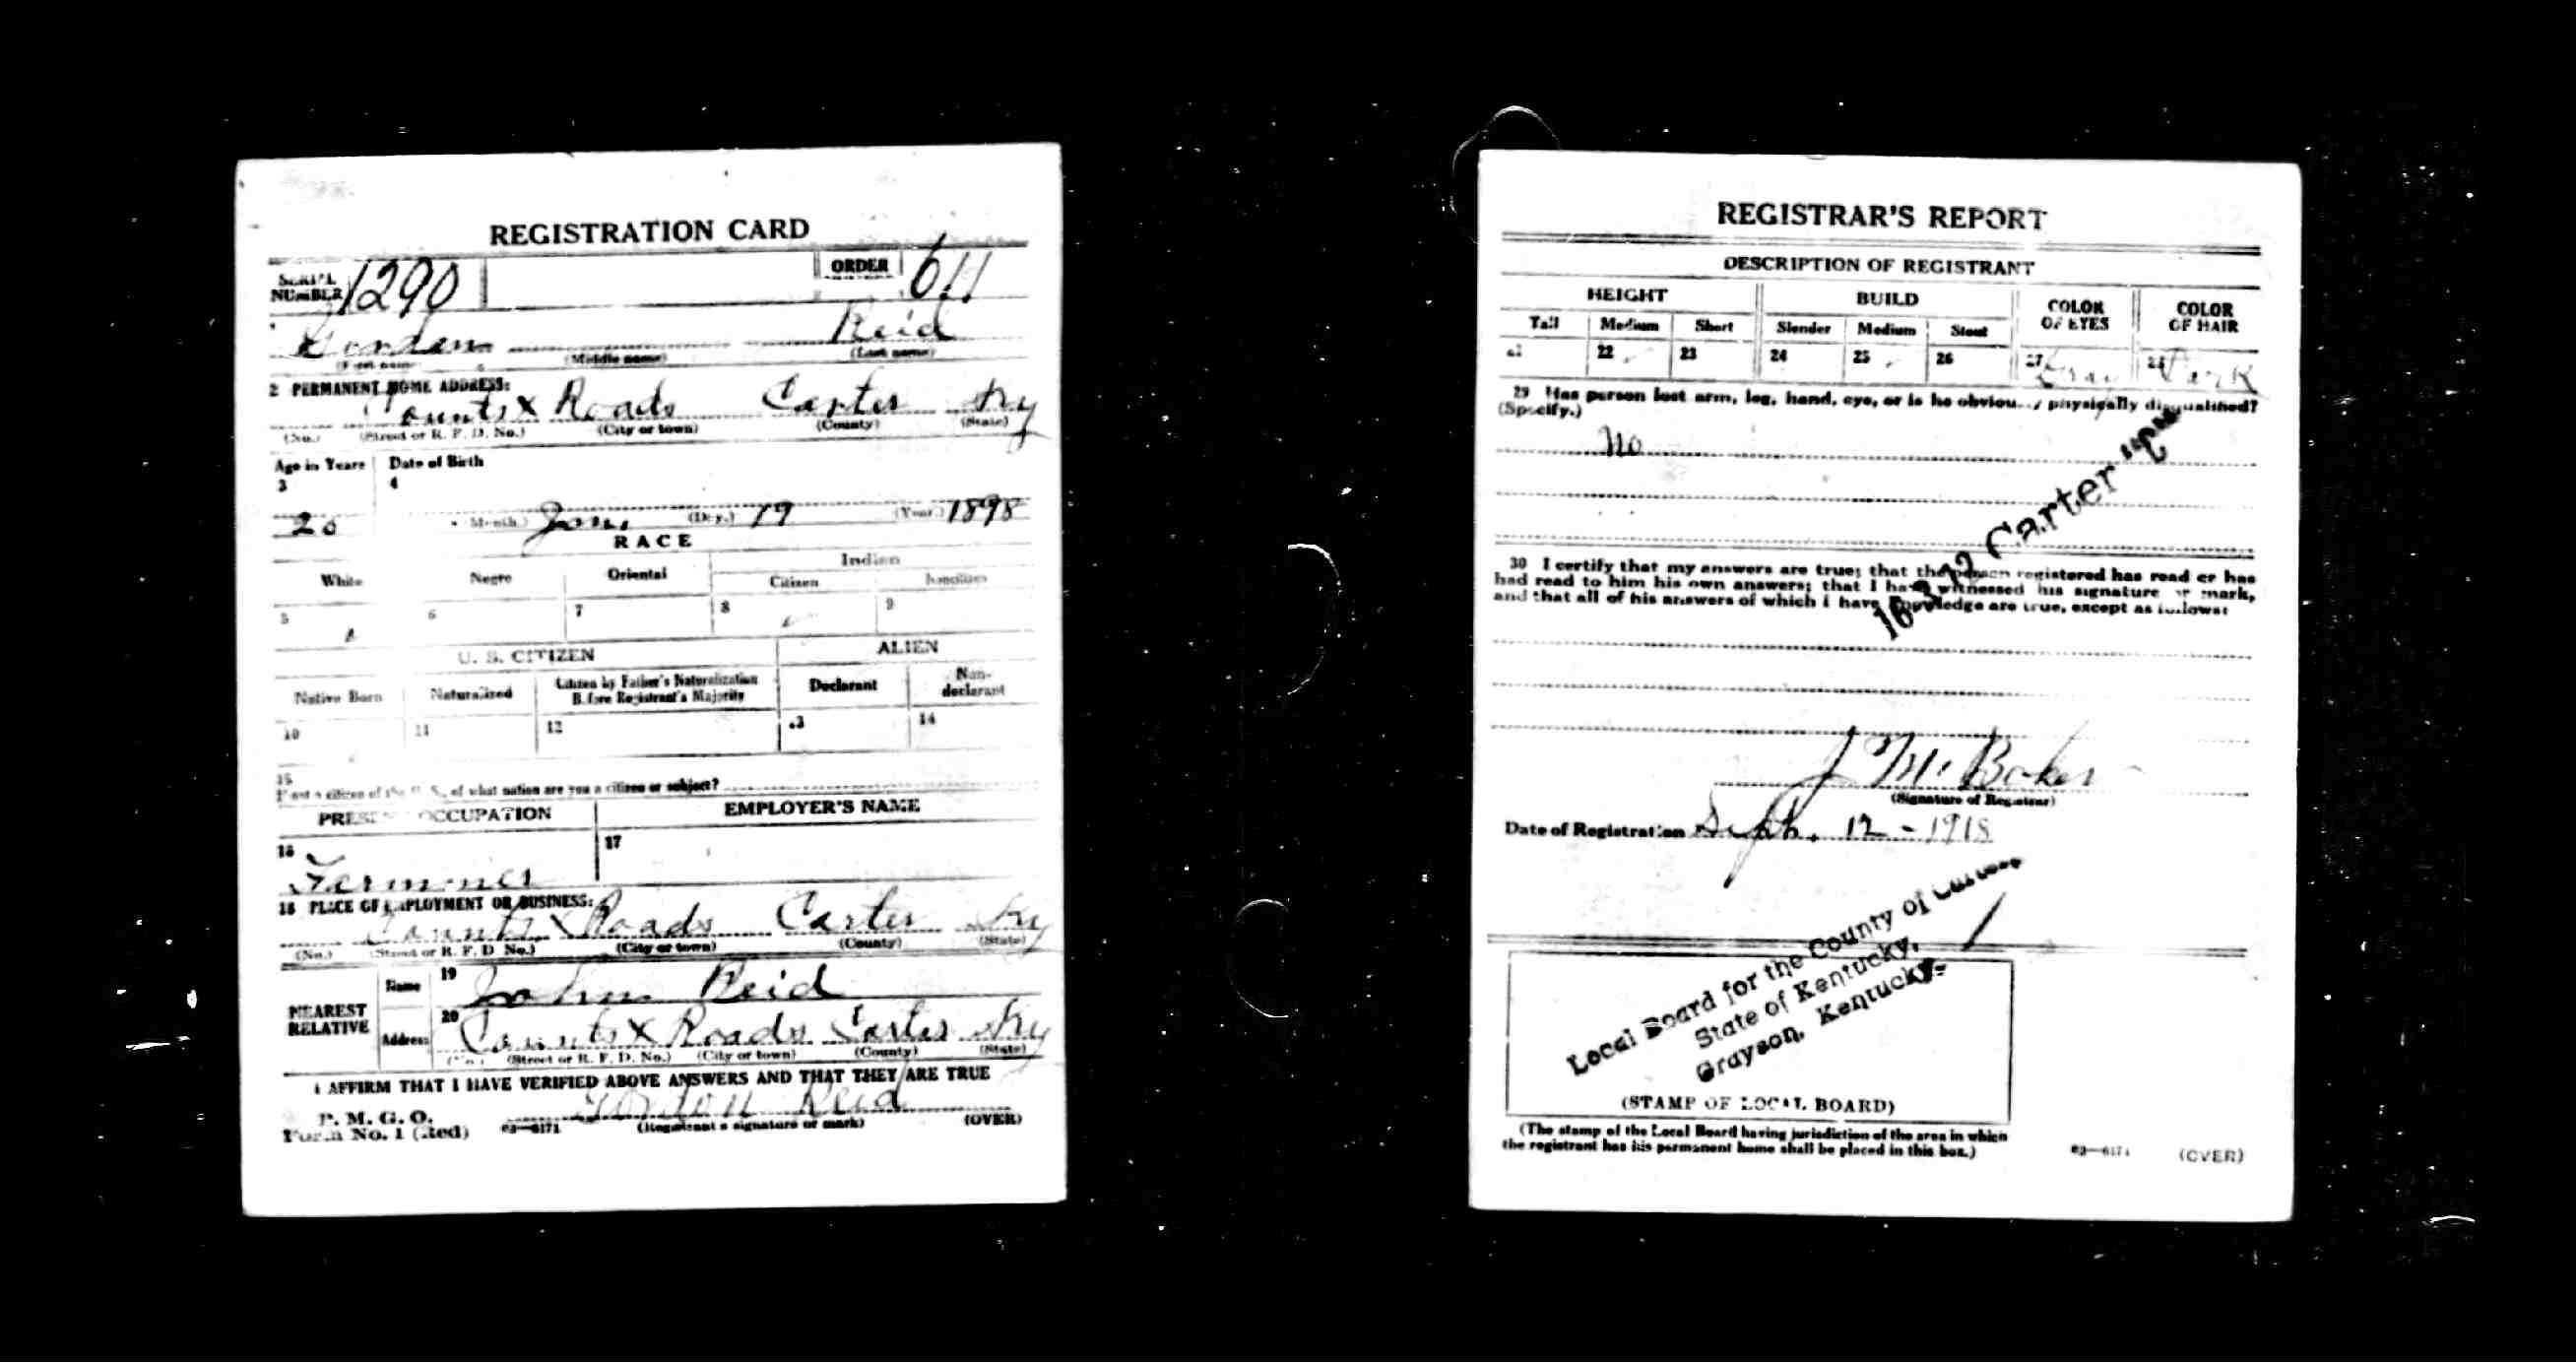 REGISTRATION CARD
SERIAL NUMBER 1290 ORDER 611
Gordon Reid
(First name) (Middle name) (Last name)
2 PERMANENT HOME ADDRESS:
Counts X Roads Carter Ky
(No.) (Street or R. F. D. No.) (City or town) (County) (State)
Age in Years Date of Birth
3 4
20 (Month.) Jan. (Day.) 19 (Year.) 1898
RACE
White Negro Oriental Indian
Citizen Noncitizen
5 6 7 8 9
U. S. CITIZEN ALIEN
Native Born Naturalized Citizen by Father's Naturalization Before Registrant's Majority Declarant Non-declarant
10 11 12 13 14
15
If not a citizen of the U. S., of what nation are you a citizen or subject?
PRESENT OCCUPATION EMPLOYER'S NAME
16 17
Farmer
18 PLACE OF EMPLOYMENT OR BUSINESS:
Counts X Roads Carter Ky
(No.) (Street or R. F. D. No.) (City or town) (County) (State)
NEAREST RELATIVE Name 19 John Reid
Address 20 Counts X Roads Carter Ky
(No.) (Street or R. F. D. No.) (City or town) (County) (State)
I AFFIRM THAT I HAVE VERIFIED ABOVE ANSWERS AND THAT THEY ARE TRUE
P. M. G. O.
Form No. 1 (Red) 03—6171 Gordon Reid
(Registrant's signature or mark) (OVER)
REGISTRAR'S REPORT
DESCRIPTION OF REGISTRANT
HEIGHT BUILD COLOR OF EYES COLOR OF HAIR
Tall Medium Short Slender Medium Stout
21 22 23 24 25 26 27 Gray 28 Dark
29 Has person lost arm, leg, hand, eye, or is he obviously physically disqualified?
(Specify.)
No
16-3-12 Carter
30 I certify that my answers are true; that the person registered has read or has
had read to him his own answers; that I have witnessed his signature or mark,
and that all of his answers of which I have knowledge are true, except as follows:
J. M. Baker
(Signature of Registrar)
Date of Registration Sept. 12 - 1918
Local Board for the County of Carter
State of Kentucky,
Grayson, Kentucky
(STAMP OF LOCAL BOARD)
(The stamp of the Local Board having jurisdiction of the area in which
the registrant has his permanent home shall be placed in this box.)
03—6171 (OVER)